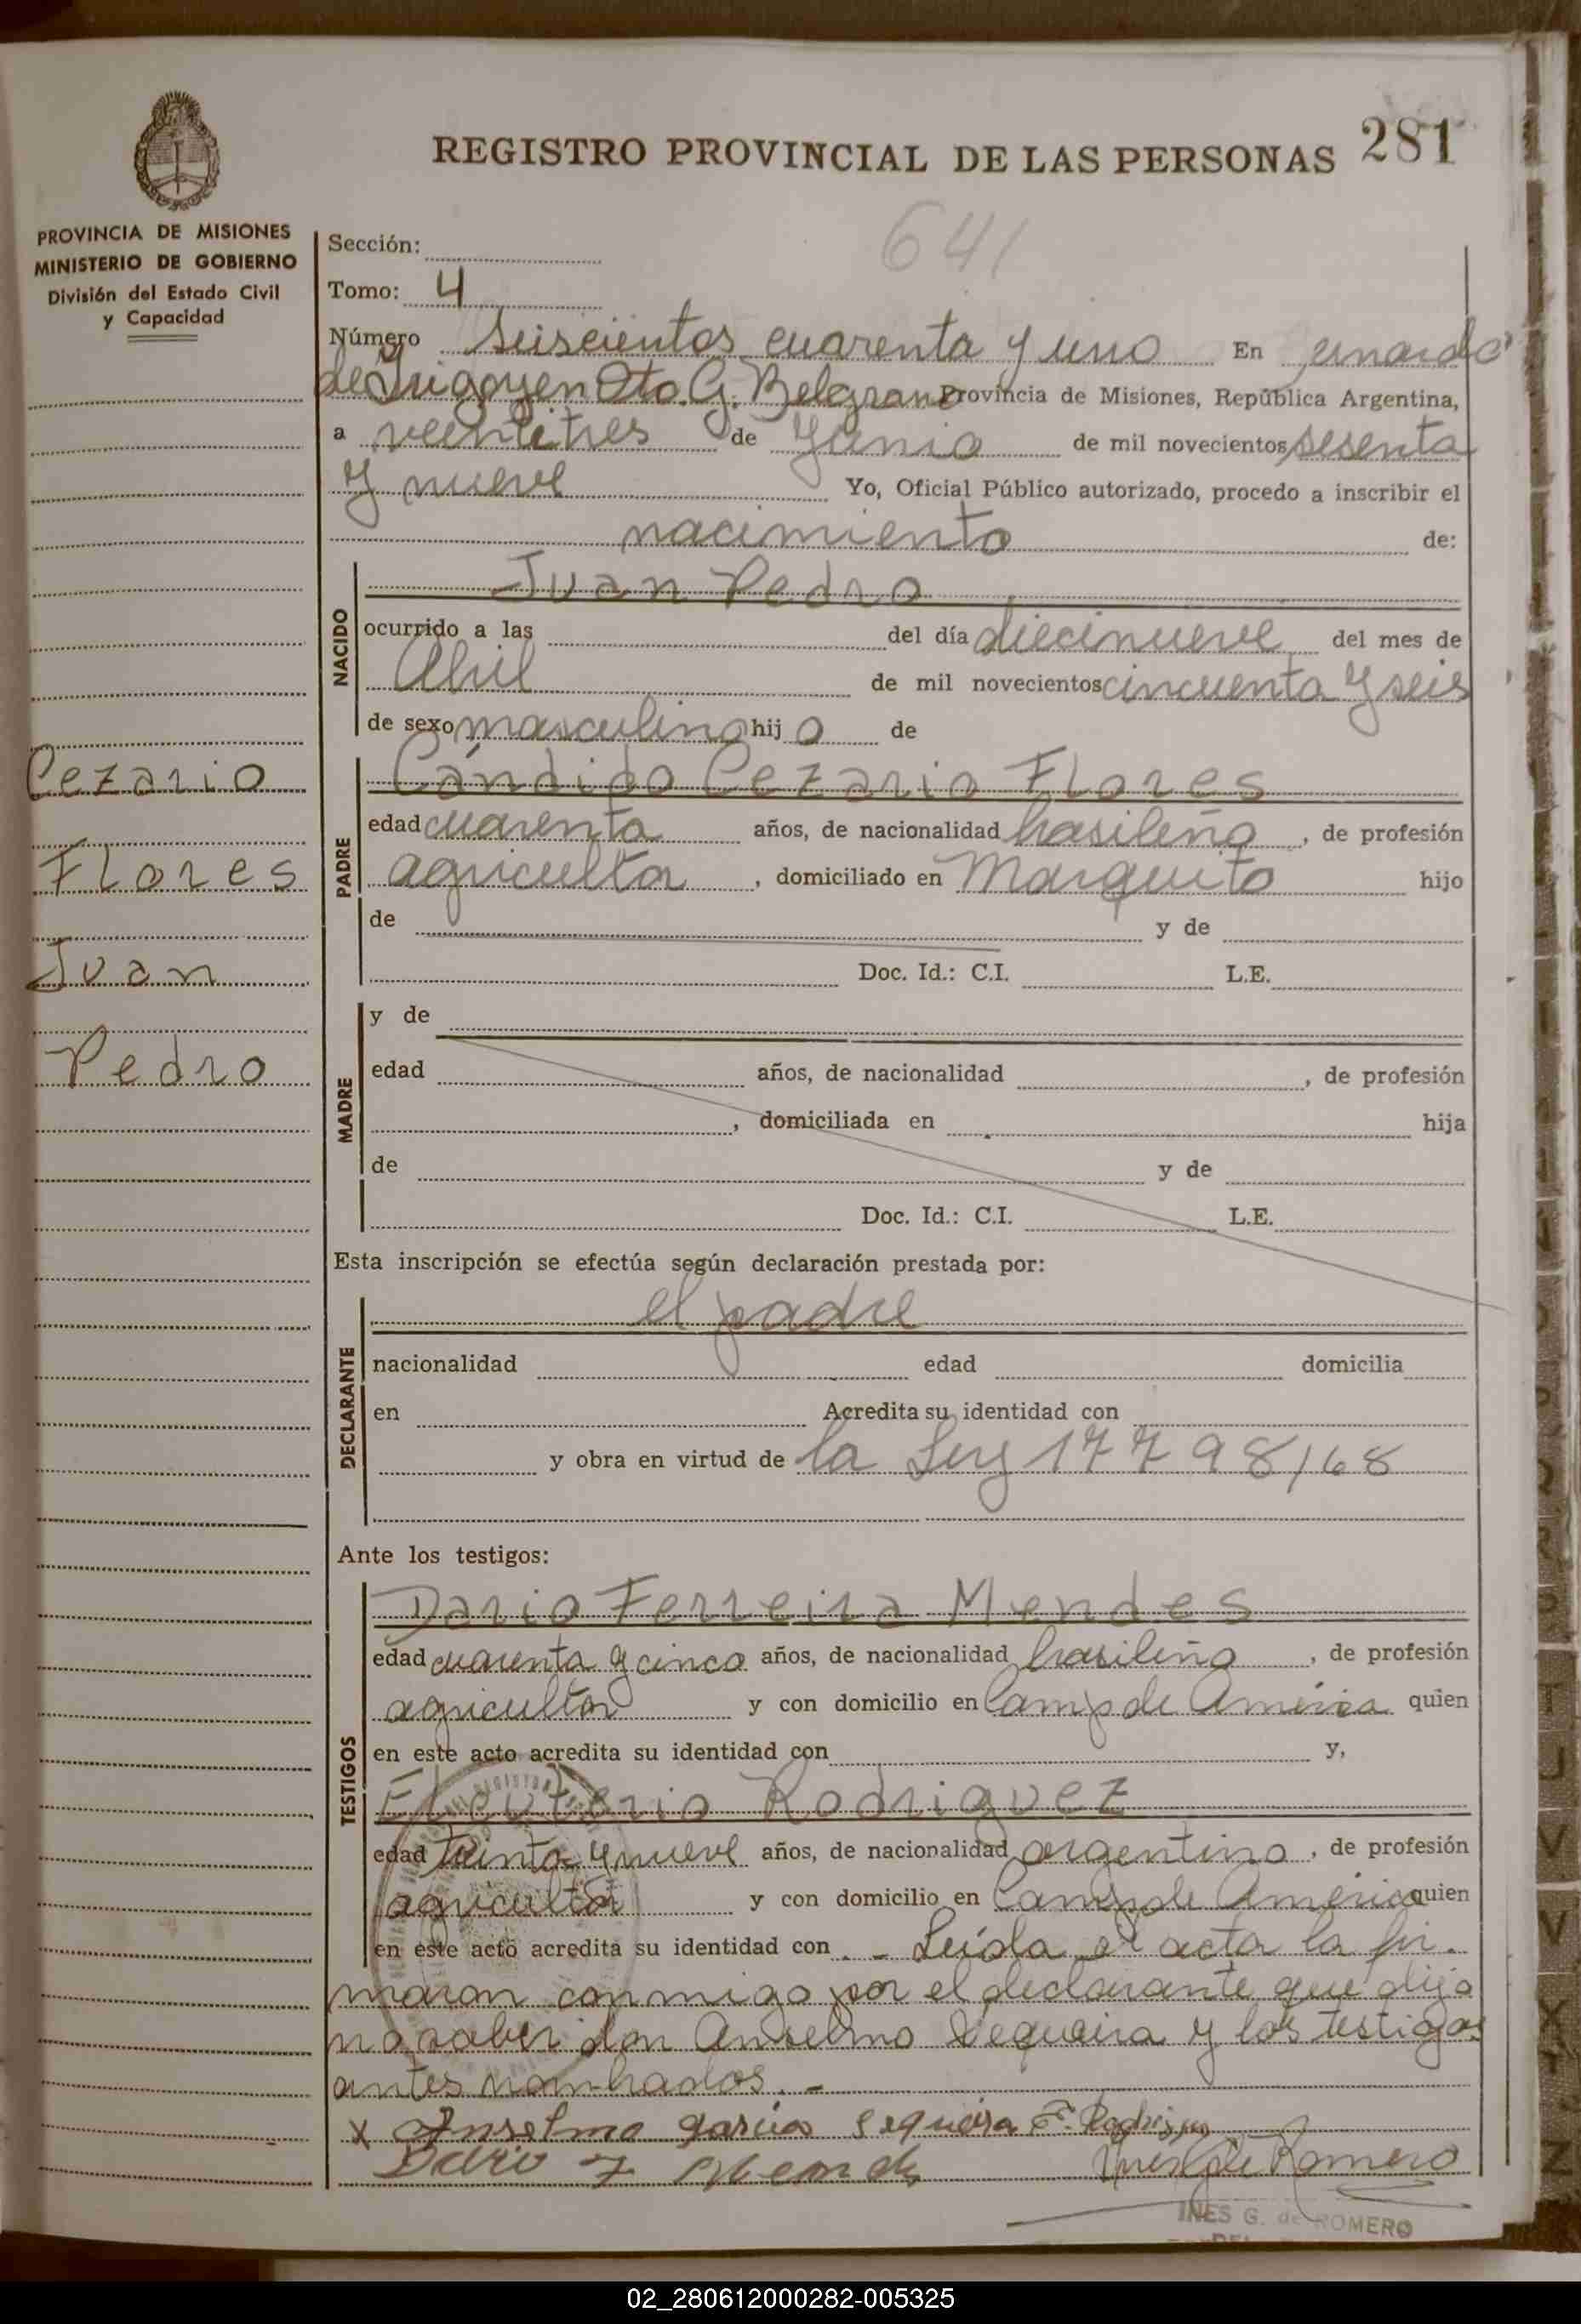 281
REGISTRO PROVINCIAL DE LAS PERSONAS
PROVINCIA DE MISIONES
MINISTERIO DE GOBIERNO
División del Estado Civil
y Capacidad
641
Sección:
Tomo: 4
Número Seiscientos cuarenta y uno En
de Irigoyen Dto. G. Belgrano Provincia de Misiones, República Argentina,
a veintitres de Junio de mil novecientos sesenta
y nueve Yo, Oficial Público autorizado, procedo a inscribir el
nacimiento de:
NACIDO
Juan Pedro
ocurrido a las del día diecinueve del mes de
Abril de mil novecientos cincuenta y seis
de sexo masculino hij o de
Cezario
Flores
Juan
Pedro
PADRE
Cándido Cezario Flores
edad cuarenta años, de nacionalidad brasileño, de profesión
agricultor, domiciliado en Marquito hijo
de y de
Doc. Id.: C.I. L.E.
MADRE
y de
edad años, de nacionalidad , de profesión
, domiciliada en hija
de y de
Doc. Id.: C.I. L.E.
Esta inscripción se efectúa según declaración prestada por:
DECLARANTE
el padre
nacionalidad edad domicilia
en Acredita su identidad con
y obra en virtud de la Ley 17798/68
Ante los testigos:
TESTIGOS
Dario Ferreira Mendes
edad cuarenta y cinco años, de nacionalidad brasileño, de profesión
agricultor y con domicilio en Camp de America quien
en este acto acredita su identidad con y,
Eleuterio Rodriguez
edad treinta y nueve años, de nacionalidad argentino, de profesión
agricultor y con domicilio en Camp de America quien
en este acto acredita su identidad con . - Leída el acta la fir.
maron conmigo por el declarante que dijo
no saber don Anselmo Sequeira y los testigos
antes nombrados. -
x Anselmo garcia Sequeira F. Rodriguez
Dario F Mendes Ines G de Romero
INES G. de ROMERO
02_280612000282-005325